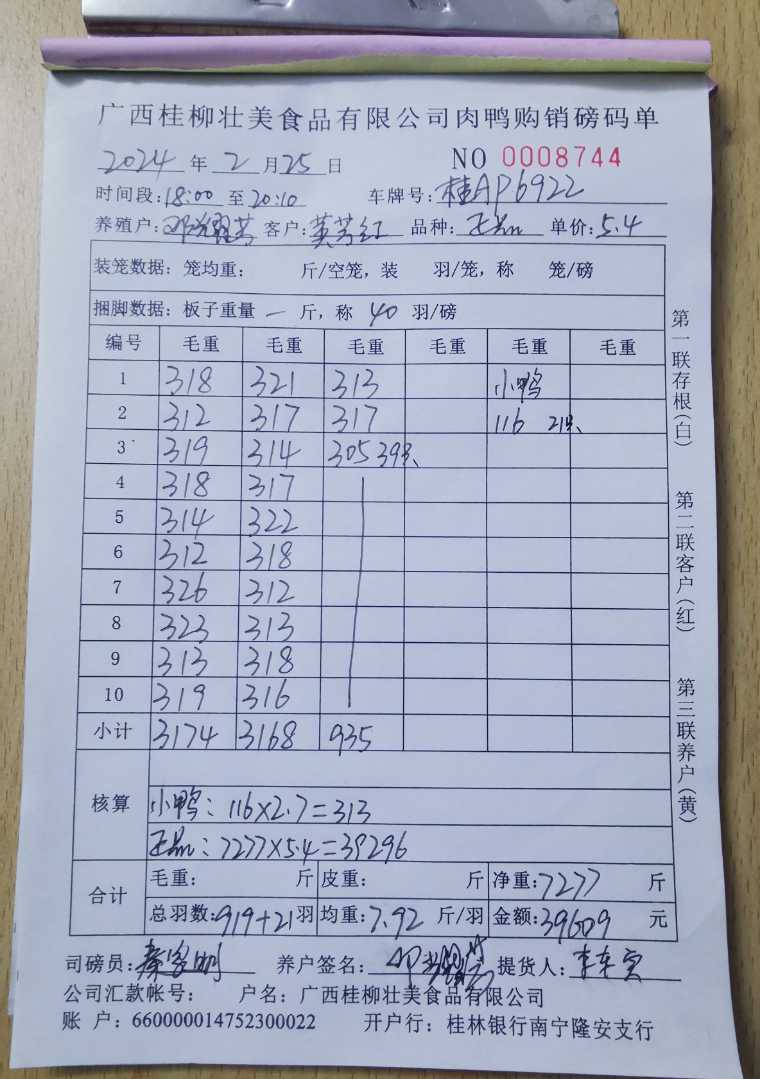 广西桂柳壮美食品有限公司肉鸭购销磅码单
2024 年 2 月 25 日 NO 0008744
时间段: 18:00 至 20:10 车牌号: 桂AP6922
养殖户: 客户: 黄芳红 品种: 单价: 5.4
装笼数据: 笼均重: 斤/空笼, 装 羽/笼, 称 笼/磅
捆脚数据: 板子重量 一 斤, 称 40 羽/磅
编号 毛重 毛重 毛重 毛重 毛重 毛重
1 318 321 313 小鸭
2 312 317 317 116 21只
3 319 314 305 39只
4 318 317
5 314 322
6 312 318
7 326 312
8 323 313
9 313 318
10 319 316
小计 3174 3168 935
核算
小鸭: 116×2.7=313
7277×5.4=39296
合计
毛重: 斤 皮重: 斤 净重: 7277 斤
总羽数: 919+21 羽 均重: 7.92 斤/羽 金额: 39609 元
司磅员: 养户签名: 提货人:
公司汇款帐号: 户名: 广西桂柳壮美食品有限公司
账 户: 660000014752300022 开户行: 桂林银行南宁隆安支行
第一联存根(白)
第二联客户(红)
第三联养户(黄)